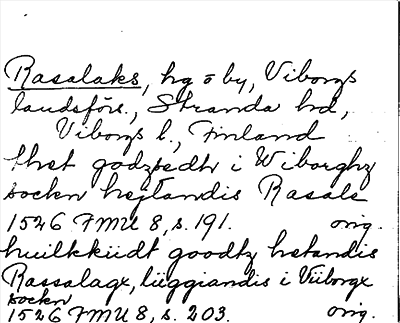 Rasalaks, hg o by, Viborgs
landsförs., Stranda hd,
Viborgs l., Finland
thet godz i Wiborghz
sockn hejtandis Rasale
1526 FMU 8, s. 191. orig.
huilkkiidt goodtz hetandis
Rassalagx, liiggiandis i Viiborgx
sockn
1526 FMU 8, s. 203. orig.